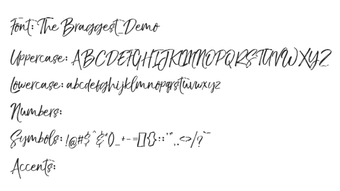 Font: The Braggest_Demo
Uppercase: ABCDEFGHIJKLMNOPQRSTUVWXYZ
Lowercase: abcdefghijklmnopqrstuvwxyz
Numbers:
Symbols: !@#$^&*()_+-=[]{}:;'",.<>/?`~
Accents: